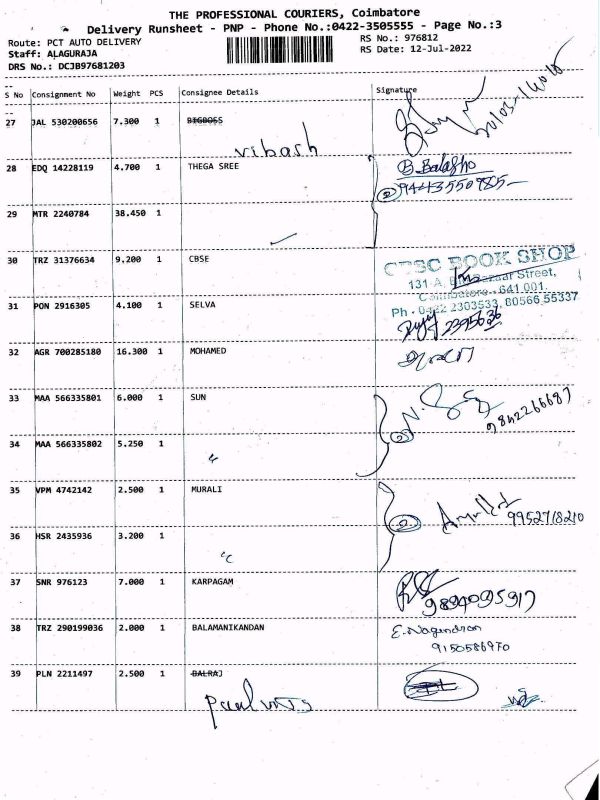 THE PROFESSIONAL COURIERS, Coimbatore
Delivery Runsheet - PNP - Phone No.:0422-3505555 - Page No.:3
Route: PCT AUTO DELIVERY
RS No.: 976812
Staff: ALAGURAJA
RS Date: 12-Jul-2022
DRS No.: DCJB97681203
S No Consignment No Weight PCS Consignee Details Signature
27 JAL 530200656 7.300 1
vibash
28 EDQ 14228119 4.700 1 THEGA SREE
2 9443550985
29 MTR 2240784 38.450 1
30 TRZ 31376634 9.200 1 CBSE
CBSC BOOK SHOP
131-A, Street,
Coimbatore - 641 001.
Ph - 0422 2303533, 80566 55337
31 PON 2916305 4.100 1 SELVA
2395636
32 AGR 700285180 16.300 1 MOHAMED
33 MAA 566335801 6.000 1 SUN
2 9842266687
34 MAA 566335802 5.250 1 "
35 VPM 4742142 2.500 1 MURALI
2 9952718210
36 HSR 2435936 3.200 1 "
37 SNR 976123 7.000 1 KARPAGAM
9894095917
38 TRZ 290199036 2.000 1 BALAMANIKANDAN
E. Nagendran
9150586970
39 PLN 2211497 2.500 1 BALRAJ